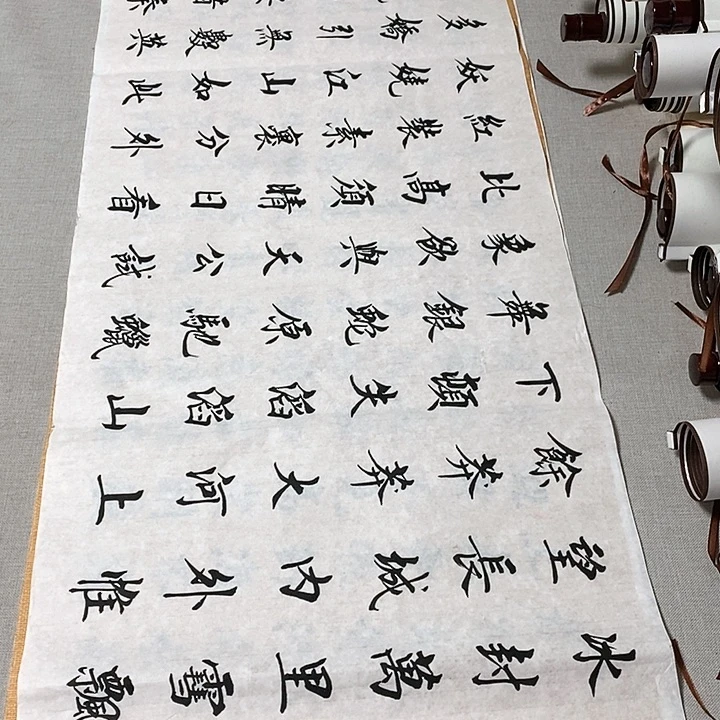 冰封萬里雪飄
望長城內外惟
餘莽莽大河上
下頓失滔滔山
舞銀蛇原馳蠟
象欲與天公試
比高須晴日看
紅裝素裹分外
妖嬈江山如此
多嬌引無數英